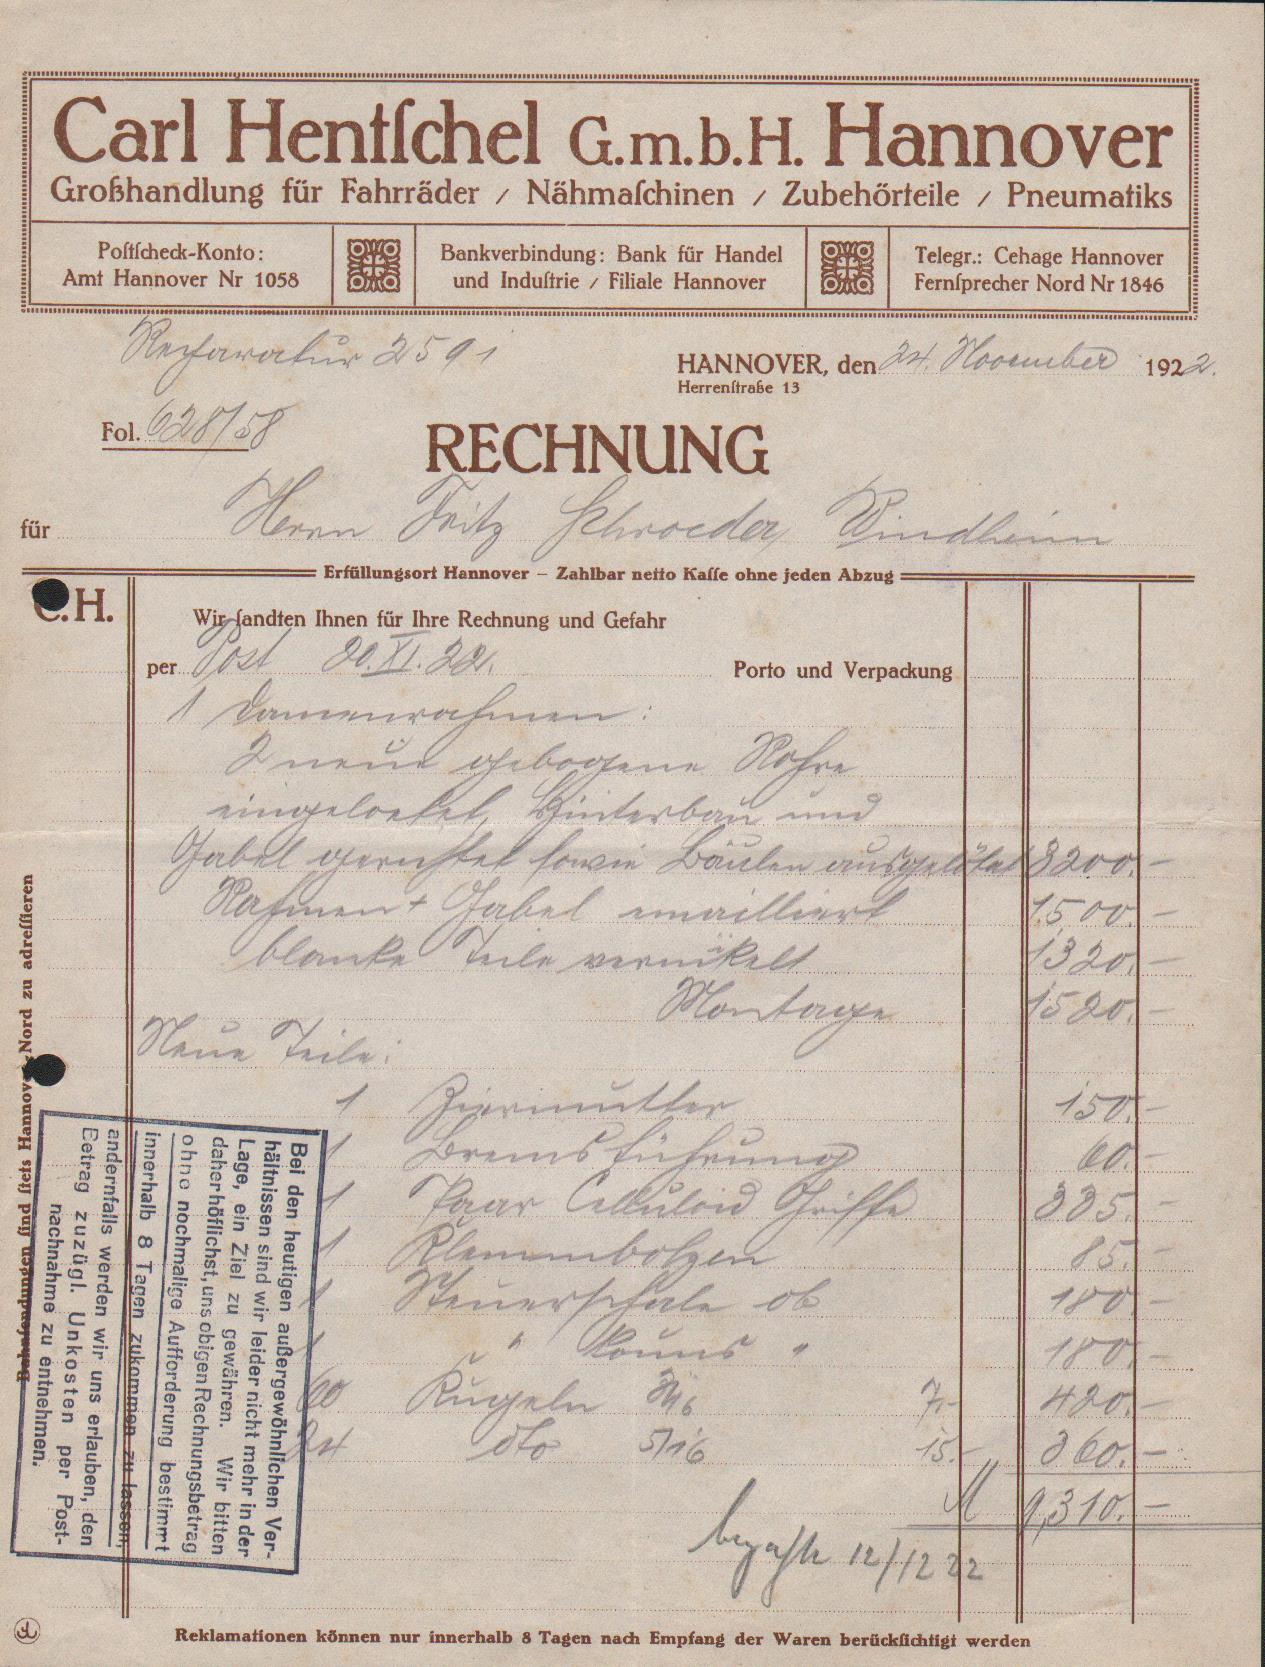 Carl Hentſchel G.m.b.H. Hannover
Großhandlung für Fahrräder / Nähmaſchinen / Zubehörteile / Pneumatiks
Poſtſcheck-Konto:
Amt Hannover Nr 1058
Bankverbindung: Bank für Handel
und Induſtrie / Filiale Hannover
Telegr.: Cehage Hannover
Fernſprecher Nord Nr 1846
Reparatur 2591
HANNOVER, den 24. November 1922.
Herrenſtraße 13
Fol. 628/58
RECHNUNG
für Herrn Fritz Schroeder, Windheim
Erfüllungsort Hannover – Zahlbar netto Kaſſe ohne jeden Abzug
C.H.
Wir ſandten Ihnen für Ihre Rechnung und Gefahr
per Post 20.XI.22. Porto und Verpackung
1 Damenrahmen:
2 neue gebogene Rohre
eingeloetet, Hinterbau und
Gabel gerichtet sowie Beulen ausgelötet 3200.–
Rahmen + Gabel emailliert 1500.–
blanke Teile vernikelt 1320.–
Montage 1520.–
Neue Teile:
1 Ziermutter 150.–
1 Bremsführung 60.–
1 Paar Celluloid Griffe 335.–
1 Klemmbolzen 85.–
1 Steuerschale ob 180.–
1 " " 180.–
60 Kugeln 3/16 7.– 420.–
24 dto 5/16 15.– 360.–
M 9,310.–
bezahlt 12/12 22
Bahnſendungen ſind ſtets Hannover-Nord zu adreſſieren
Bei den heutigen außergewöhnlichen Ver-
hältnissen sind wir leider nicht mehr in der
Lage, ein Ziel zu gewähren. Wir bitten
daher höflichst, uns obigen Rechnungsbetrag
ohne nochmalige Aufforderung bestimmt
innerhalb 8 Tagen zukommen zu lassen,
andernfalls werden wir uns erlauben, den
Betrag zuzügl. Unkosten per Post-
nachnahme zu entnehmen.
Reklamationen können nur innerhalb 8 Tagen nach Empfang der Waren berückſichtigt werden